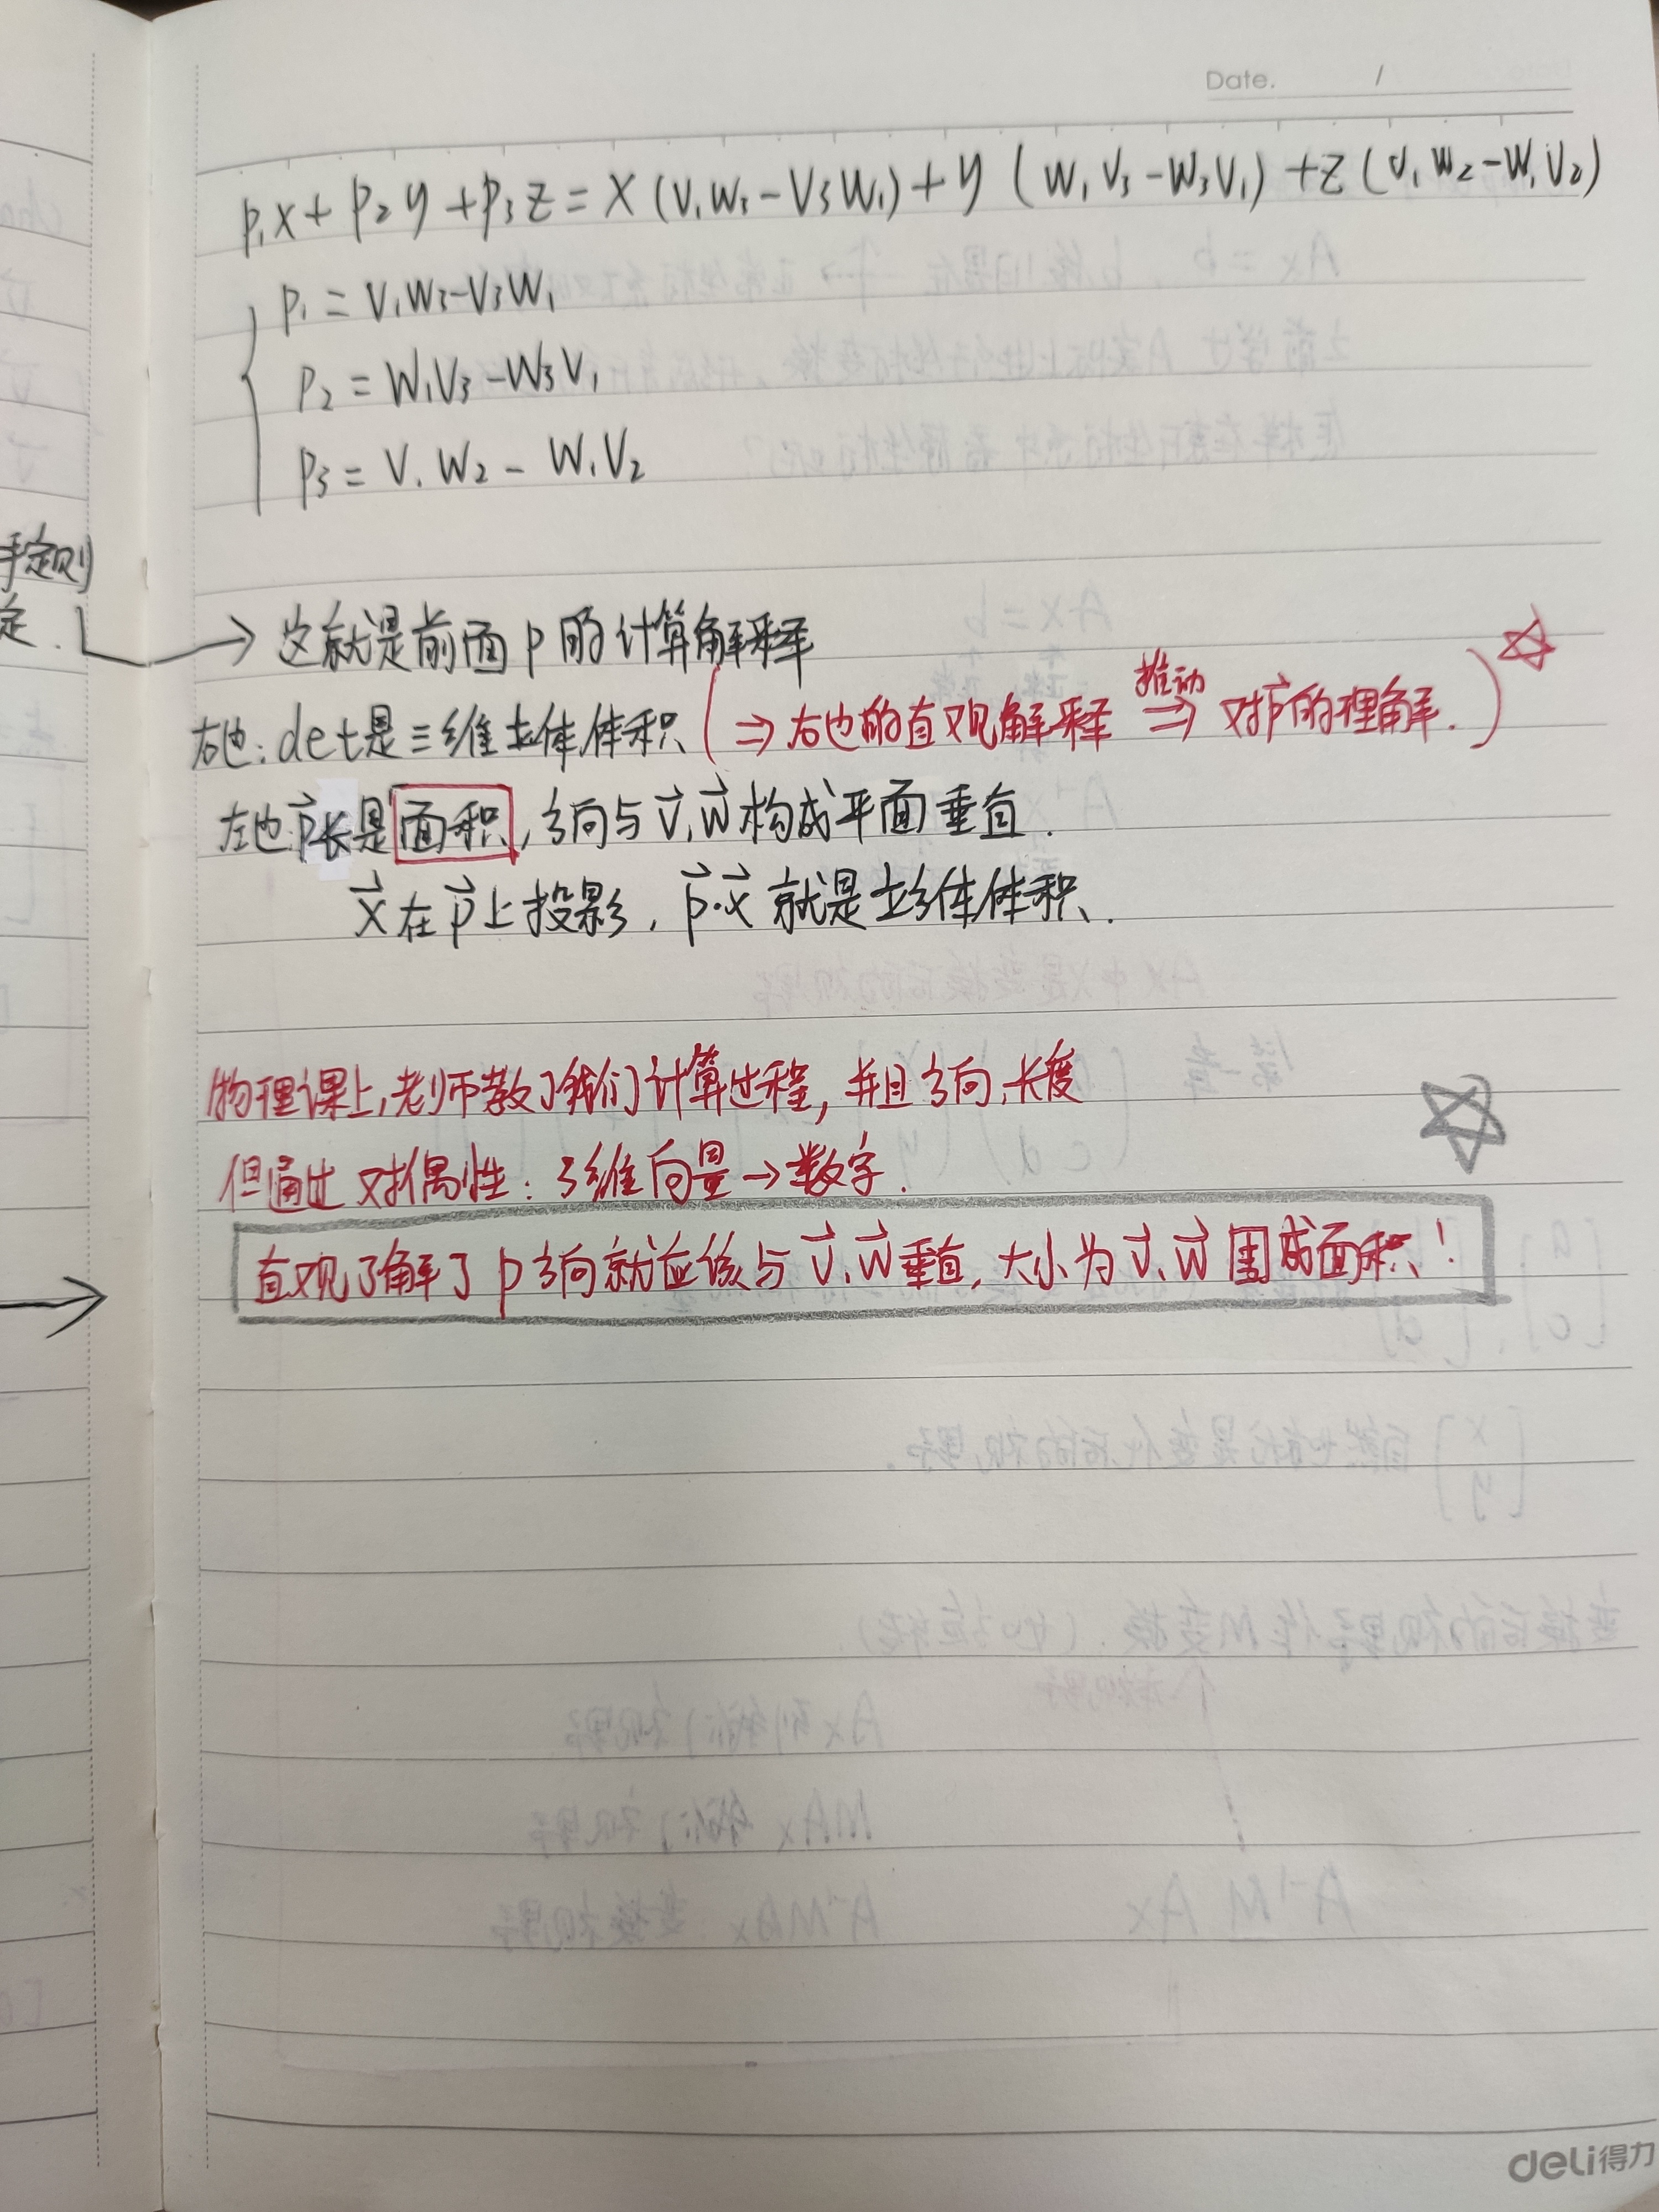 Date. /
p₁x + p₂y + p₃z = x(v₁w₃-v₃w₁)+y(w₁v₃-w₃v₁)+z(v₁w₂-w₁v₂)
p₁ = v₁w₃-v₃w₁
p₂ = w₁v₃-w₃v₁
p₃ = v₁w₂-w₁v₂
手定则
定.
→ 这就是前面p的计算解释
右边:det是三维立体体积(⇒右边的直观解释 推动⇒ 对p⃗的理解.)
左边p⃗长是面积,方向与v⃗,w⃗构成平面垂直.
x⃗在p⃗上投影,p⃗·x⃗就是立方体体积.
物理课上,老师教了我们计算过程,并且方向,长度
但通过对偶性:3维向量→数字.
直观了解了p方向就应该与v⃗,w⃗垂直,大小为v⃗,w⃗围成面积!
deli得力